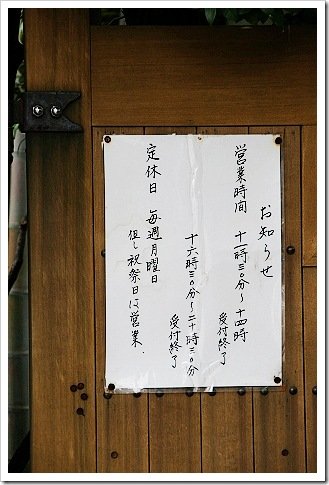 お知らせ
営業時間 十一時三〇分～十四時
受付終了
十六時三〇分～二十時三〇分
受付終了
定休日 毎週月曜日
但し祝祭日は営業.